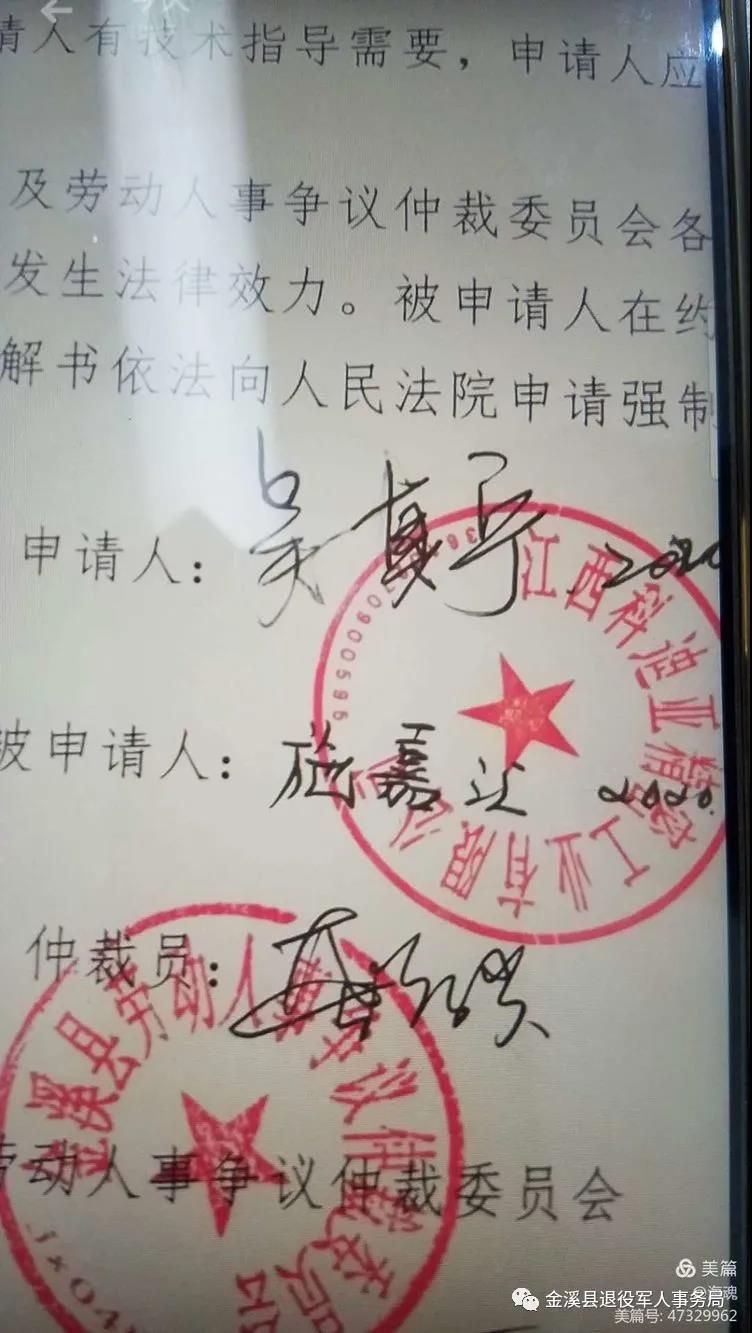 请人有技术指导需要，申请人应
及劳动人事争议仲裁委员会各
发生法律效力。被申请人在约
解书依法向人民法院申请强制
申请人：吴真平 2020
江西科迪亚精密工业有限公司
被申请人：施嘉 2020.
仲裁员：
金溪县劳动人事争议仲裁委员
劳动人事争议仲裁委员会
美篇
@海魂
金溪县退役军人事务局
美篇号: 47329962